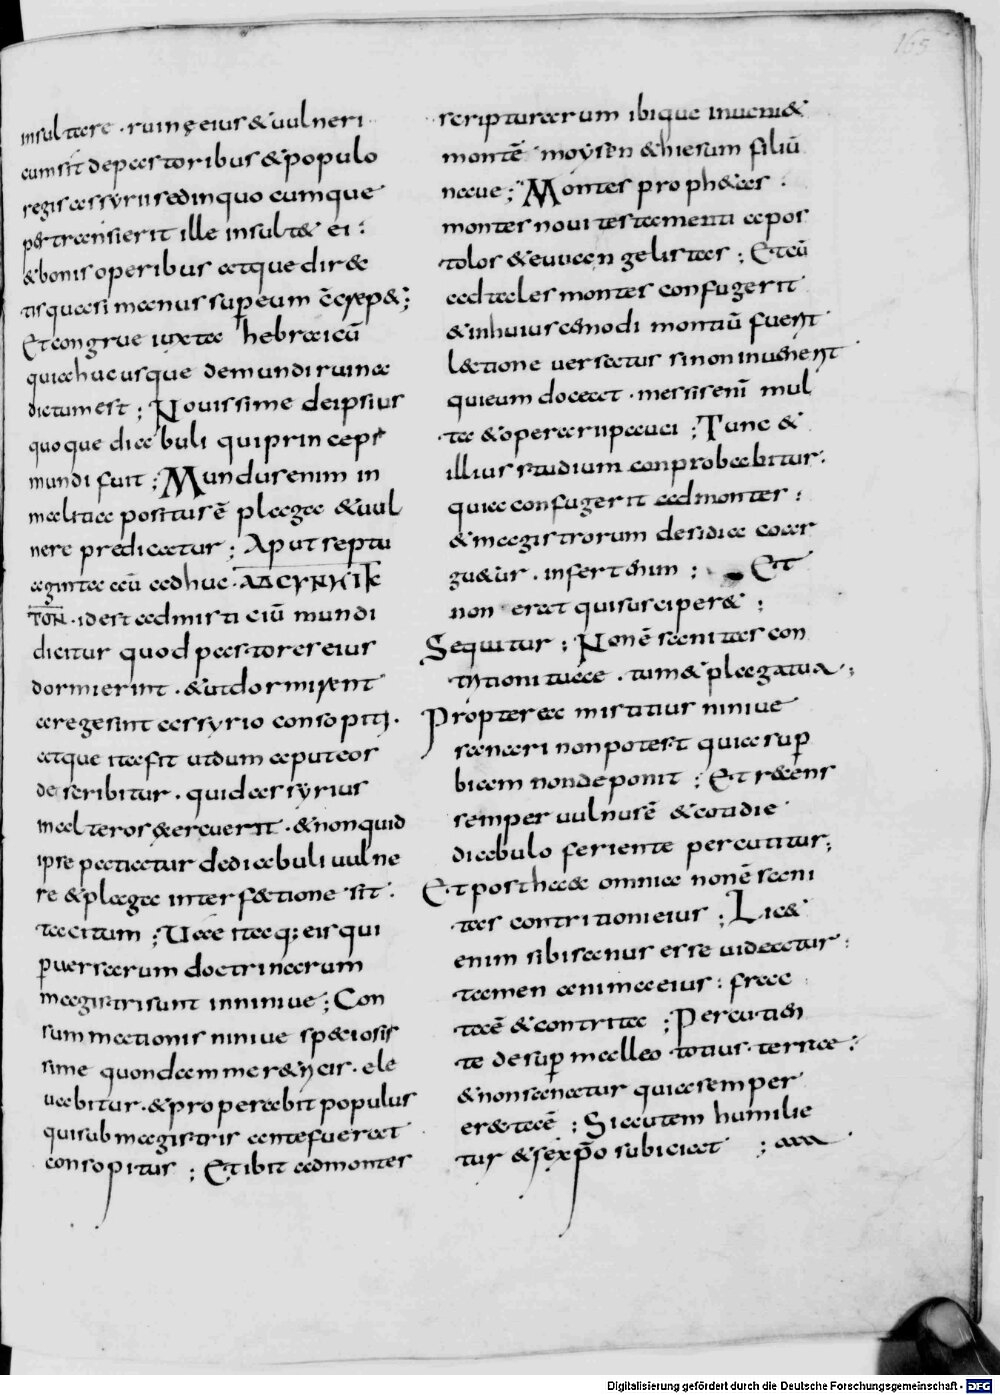 165
insultare . ruinę eius & uulneri
cum sit de pastoribus & populo
regis assyrii sed in quo cumque
p&transierit ille insult& ei :
& bonis operibus atque dir&
tis quasi manus sup eum c̄crep& ;
Et congrue iuxta hebraicū
quia huc usque de mundi ruina
dictum est ; Nouissime de ipsius
quoque diabuli qui princeps
mundi fuit ; Mundus enim in
malitia positus ē plaga & uul
nere predicatur ; Aput septu
aginta aū adhuc .
TON . id est admisti ciū mundi
dicitur quod pastores eius
dormierint . & ut dormirent
a rege sint assyrio consopiti .
atque ita fit ut dum aput eos
describitur . quid assyrius
malteros exercuerit . & non quid
ipse patiatur de diabuli uulne
re & plaga interfectione sit .
tacitum ; Uae itaq; eis qui
puersarum doctrinarum
magistri sunt in niniue ; Con
summationis niniue speciosis
sime quondam meretricis . ele
uabitur . & properabit populus
qui sub magistris ante fuerat
consopitus ; Et ibit ad montes
scripturarum ibique inueni&
montē moysen & hiesum filiū
naue ; Montes proph&as :
montes noui testamenti apos
tolos & euuangelistas ; Et cū
ad tales montes confugerit
& in huiuscemodi montiū fuerit
l&tione uersatus si non inuenerit
qui eum doceat . messis enī mul
ta & operarii pauci ; Tunc &
illius studium conprobabitur :
quia confugerit ad montes :
& magistrorum desidia coar
gu&ur . infertur enim ; Et
non erat qui susciper& ;
Sequitur ; Non ē sanitas con
tritioni tuae . tum& plaga tua ;
Propterea mistitius niniue
sanari non potest quia sup
biam non deponit ; Et recens
semper uulnus ē & cotidie
diabulo feriente percutitur ;
Et post haec omnia non ē sani
tas contritioni eius ; Lic&
enim sibi sanus esse uideatur :
tamen anima eius : frac
ta ē & contrita ; Percutien
te desup malleo totius terrae :
& non sanatur quia semper
erecta ē ; Si autem humilie
tur & se xp̄o subiciat ;
Digitalisierung gefördert durch die Deutsche Forschungsgemeinschaft - DFG